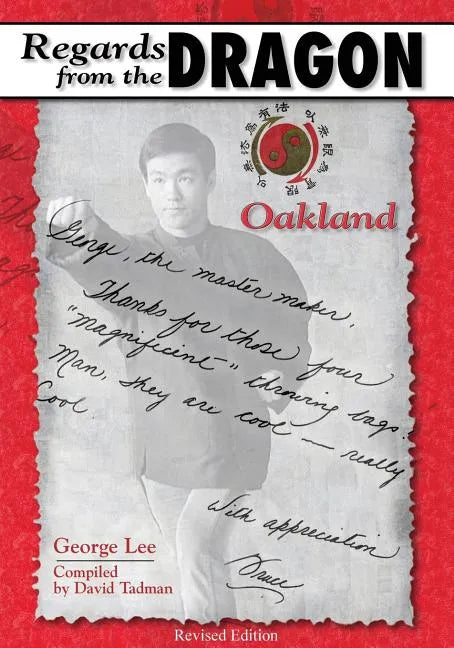 Regards
from the
DRAGON
以無限為有限
以無法為有法
Oakland
George, the master maker,
Thanks for those four
"magnificent" throwing bags.
Man, they are cool — really
Cool.
With appreciation
Bruce
George Lee
Compiled
by David Tadman
Revised Edition